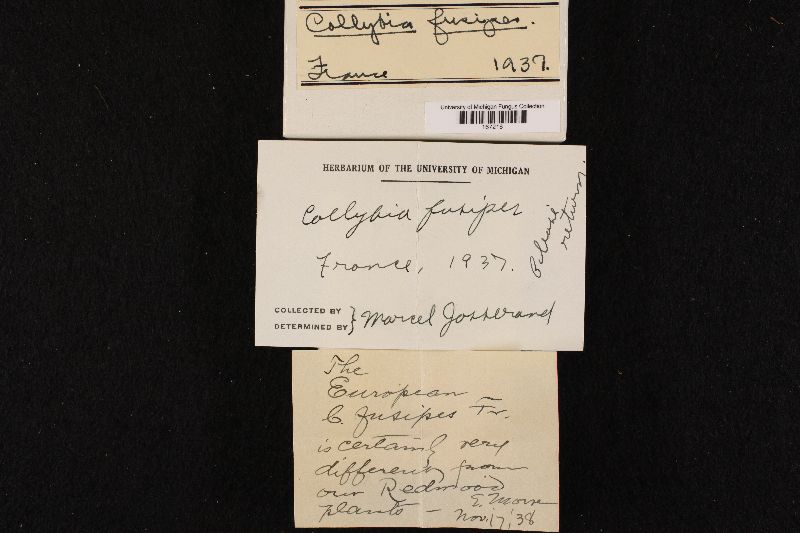 Collybia fusipes.
France 1937.
University of Michigan Fungus Collection
167218
HERBARIUM OF THE UNIVERSITY OF MICHIGAN
Collybia fusipes
France, 1937.
Please
return.
COLLECTED BY
DETERMINED BY } Marcel Josserand
The
European
C. fusipes Fr.
is certainly very
different from
our Redwood
plants – E. Morse
Nov. 17, '38